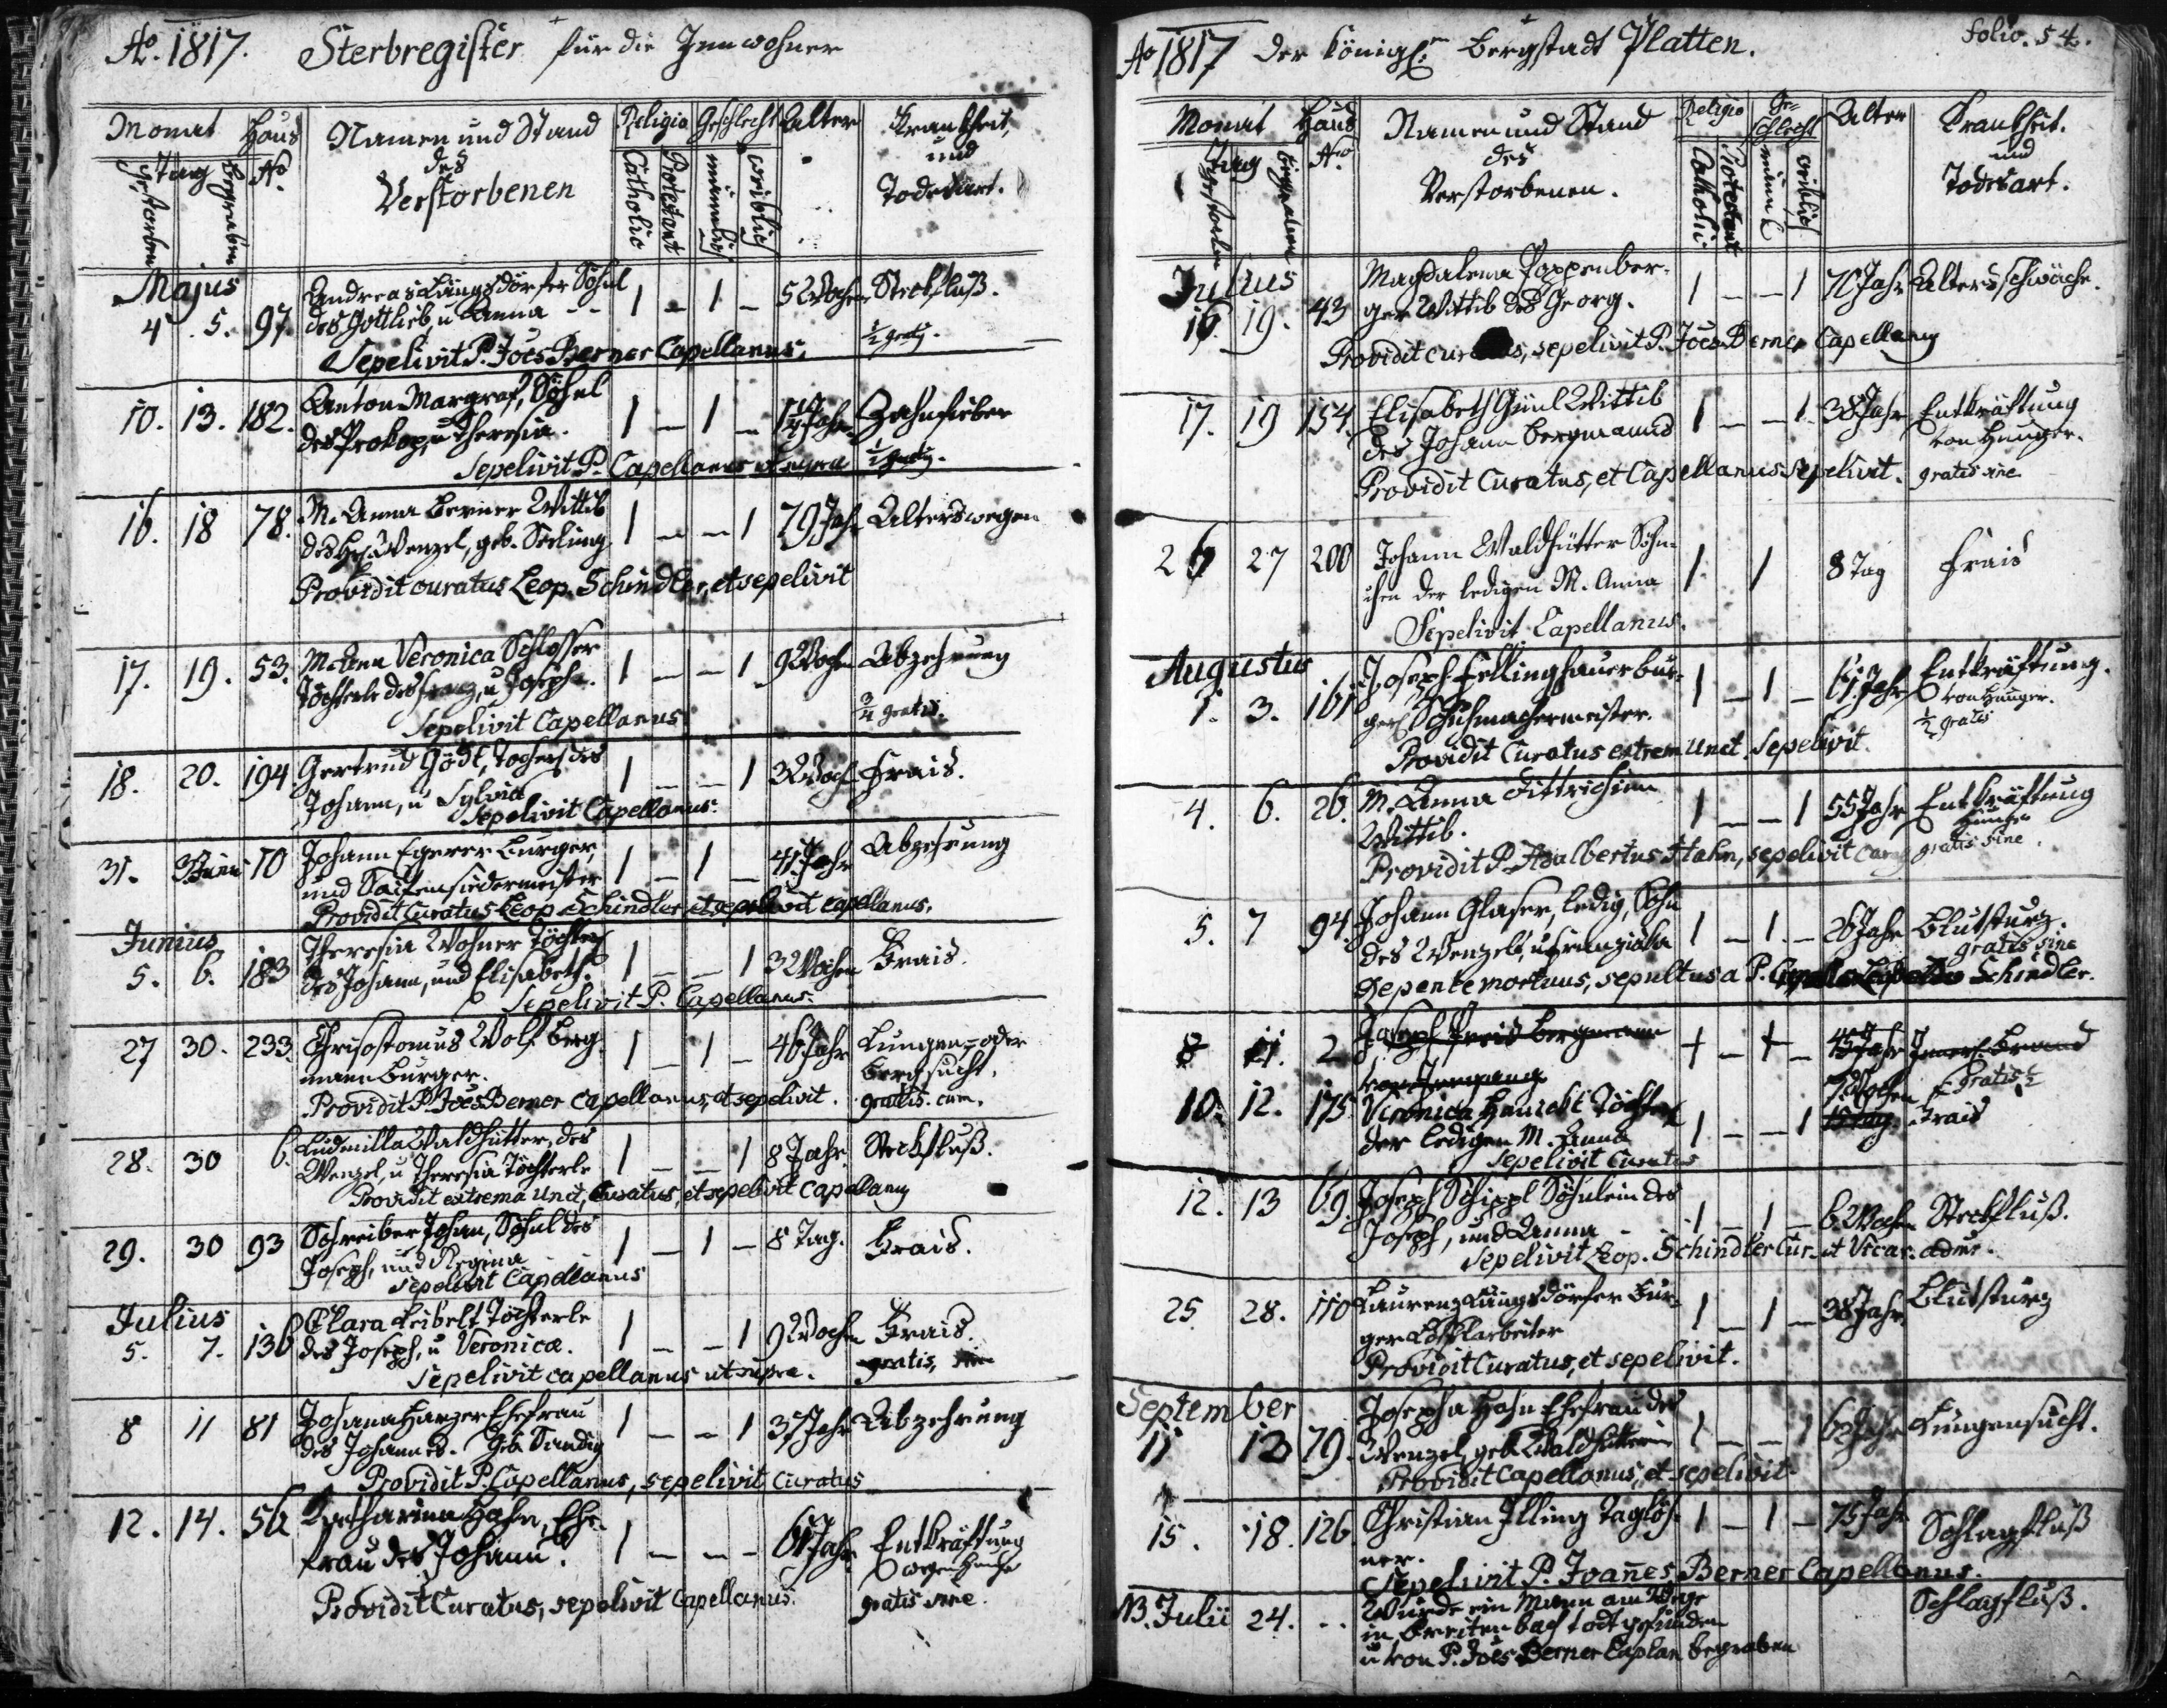 Aō. 1817. Sterbregister für die Innwohner
Monat Haus Namen und Stand Religio Geschlecht Alter Krankheit,
Tag No. des und
gestorben begraben Verstorbenen Catholic Protestant männlich weiblich Todesart.
Majus Andreas Längsdörfer Söhnl
4 5. 97. des Gottlieb, u Anna 1 – 1 – 5 Wochen Steckfluß.
Sepelivit P. Joēs Berner Capellanus. ½ gratis.
10. 13. 182. Anton Margraf, Söhnl 1 – 1 – Jahr Zahnfieber
des Prokop, u Theresia.
Sepelivit P. Capellanus ut supra
16. 18 78. M. Anna Berner Wittib 1 – – 1 79 Jahr Alterswegen
des Wenzel, geb.
Providit curatus Leop. Schindler, et sepelivit
17. 19. 53. M. Anna Veronica Schlosser 1 – – 1 9 Wochen Abzehrung
Töchterle des Franz, u Josepha.
Sepelivit Capellanus ¾ gratis.
18. 20. 194 Gertrud Godt, des 1 – – 1 3 Woch. Frais.
Johann, u Sylvia
Sepelivit Capellanus.
31. 3 Juni 70 Johann Egerer Burger, 1 – 1 – 41 Jahr Abzehrung
und Saifensiedermeister
Providit Curatus Leop. Schindler et sepelivit capellanus.
Junius Theresia Wohner
5. 6. 183 des Johann, und Elisabeth. 1 – – 1 3 Wochen Frais.
Sepelivit P. Capellanus.
27 30. 233. Chrisostomus Wolf Berg- 1 – 1 – 46 Jahr Lungen- oder
mann Burger. Bergsucht.
Providit P. Joēs Berner Capellanus, et sepelivit. gratis. cum.
28. 30 6. Ludmilla Waldhütter, des 1 – – 1 8 Jahr. Steckfluß.
Wenzel, u Theresia Töchterle
Providit extrema unct, Curatus, et sepelivit capellang
29. 30 93 Schreiber Johan, Söhnl des 1 – 1 – 8 Tag. Frais.
Joseph, und Regina
Sepelivit Capellanus
Julius Clara Leibelt Töchterle
5. 7. 136 des Joseph, u Veronica. 1 – – 1 9 Woch Frais.
Sepelivit capellanus ut supra. gratis,
8 11 81 Johana Harzer Ehefrau 1 – – 1 37 Jahr Abzehrung
des Johannes. geb. Sandig
Providit P. Capellanus, sepelivit Curatus
12. 14. 56 Katharina Hahn, Ehe- 1 – – – 61 Jahr Entkräftung
frau des Johann.
Providit Curatus, sepelivit Capellanus. gratis sine.
Aō 1817 der Königl. Bergstadt Platten. Folio. 54.
Monat Haus Namen und Stand Religio Ge- Alter Krankheit.
Tag No. des schlecht und
gestorben begraben Verstorbenen. Catholic Protestant männl weiblich Todesart.
Julius Magdalena Poppenber- 1 – – 1 70 Jahr Altersschwäche.
16. 19. 43 ger Wittib des Georg.
Providit curatus, sepelivit P. Joēs Berner Capellang
17. 19 154. Elisabeth Günl Wittib 1 – – 1. 38 Jahr Entkräftung
des Johann Bergmanns von Hunger.
Providit Curatus, et Capellanus sepelivit. gratis sine
26 27 200 Johann Waldhütter Söhn- 1 1 8 Tag Frais
chen der ledigen M. Anna
Sepelivit Capellanus.
Augustus Joseph Fellinghauer bur- 1 – 1 – 61 Jahr Entkräftung.
1. 3. 161 gerl Schuhmachermeister. von Hunger.
½ gratis
Providit Curatus extrem unct. sepelivit.
4. 6. 26. M. Anna Dittrichinn 1 – – 1 55 Jahr Entkräftung
Wittib. Hunger
Providit P. Adalbertus Hahn, sepelivit gratis sine.
5. 7 94. Johann Glaser, ledig, Sohn 1 – 1. – 26 Jahr Blutsturz.
des Wenzels, u Franziska gratis sine
Repente mortuus, sepultus a P. Schindler.
8 11. 2 Joseph Bergmann 1 – 1 – 45 Jahr Brand
gratis
10. 12. 175 Veronica Töchterl 1 – – 1 7 Wochen Frais
der ledigen M. Anna
Sepelivit Curatus
12. 13 69. Joseph Schippl Söhnlein des 1 – 1 – 6 Woch Steckfluß.
Joseph, und Anna
Sepelivit Leop. Schindler Cur. et Vicar. adm.
25. 28. 110 Laurenz Längsdörfer Bur- 1 – 1 – 38 Jahr Blutsturz
ger Löfflarbeiter
Providit Curatus, et sepelivit.
September Josepha Hahn Ehefrau des
11 12 79. Wenzel, geb. Waldhütterin 1 – – 1 Jahr Lungensucht.
Providit Capellanus, et sepelivit
15. 18. 126 Christian Illing Taglöh- 1 – 1 – 75 Jahr Schlagfluß
ner.
Sepelivit P. Joañes Berner Capellanus.
NB. Julii 24. .. Wurde ein Mann am Wege Schlagfluß.
in Breitenbach todt gefunden
u von P. Joēs Berner Caplan begraben